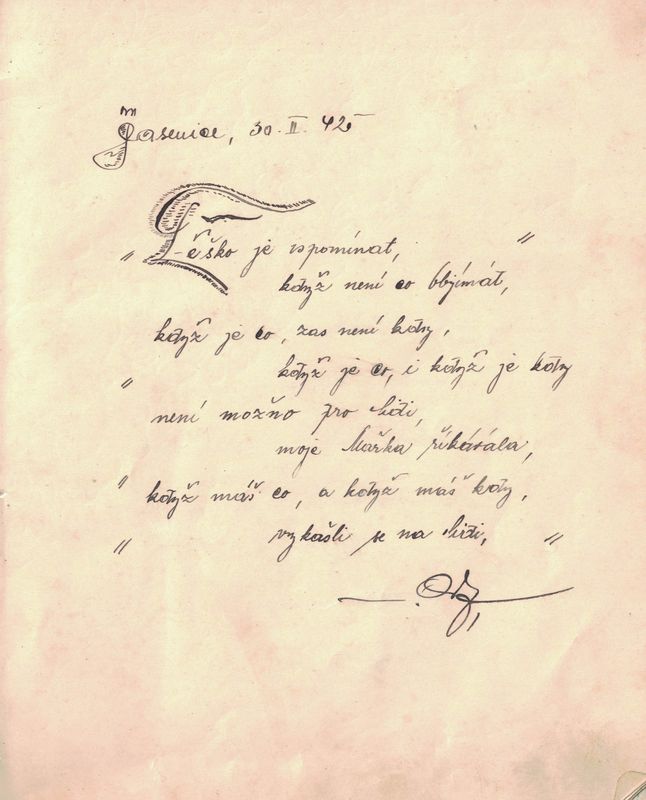 Jasenice, 30. II. 425
" Těško je vspomínat, "
když není co objímát,
když je co, zas není kdy,
když je co, i když je kdy
" není možno pro lidi,
moje Mařka říkávala,
" když máš co, a když máš kdy,
" vykašli se na lidi, "